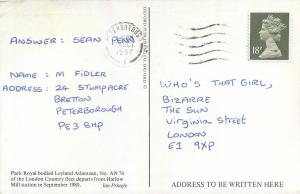 ANSWER: SEAN PENN
NAME: M FIDLER
ADDRESS: 24 STUMPACRE
BRETTON
PETERBOROUGH
PE3 8HP
Park Royal bodied Leyland Atlantean, No. AN 74
of the London Country fleet departs from Harlow
Mill station in September 1980.
Ian Pringle
18P
WHO'S THAT GIRL,
BIZARRE
THE SUN
Virginia Street
LONDON
E1 9XP
ADDRESS TO BE WRITTEN HERE